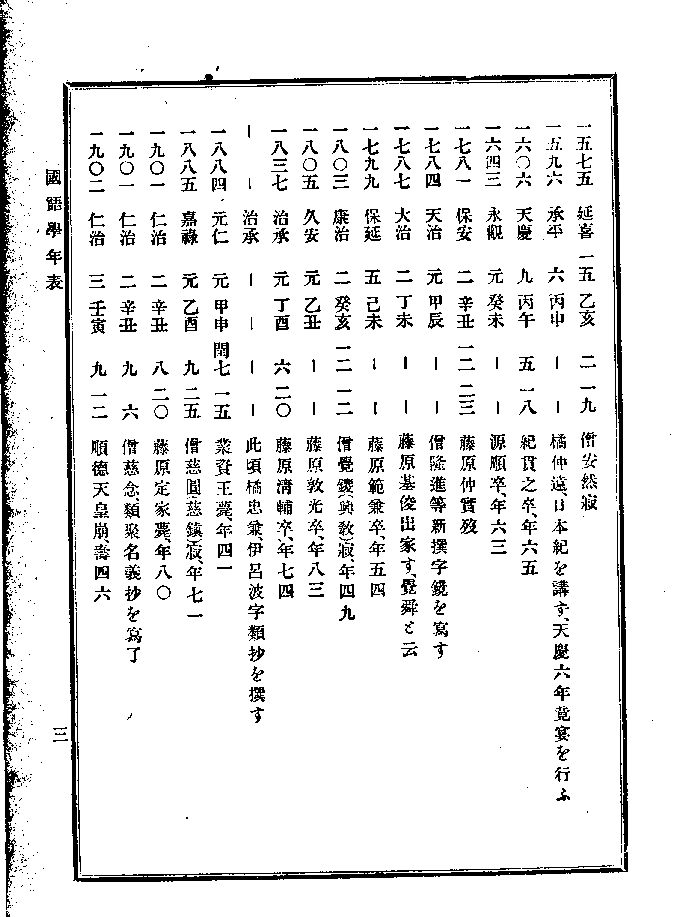 一五七五 延喜 一五 乙亥 二 一九 僧安然寂
一五九六 承平 六 丙申 ー ー 橘仲遠、日本紀を講す、天慶六年竟宴を行ふ
一六〇六 天慶 九 丙午 五 一八 紀貫之卒、年六五
一六四三 永觀 元 癸未 ー ー 源順卒、年六三
一七八一 保安 二 辛丑 一二 二三 藤原仲實歿
一七八四 天治 元 甲辰 ー ー 僧隆進等新撰字鏡を寫す
一七八七 大治 二 丁未 ー ー 藤原基俊出家す、覺舜と云
一七九九 保延 五 己未 ー ー 藤原範兼卒、年五四
一八〇三 康治 二 癸亥 一二 一二 僧覺鑁(興敎)寂、年四九
一八〇五 久安 元 乙丑 ー ー 藤原敦光卒、年八三
一八三七 治承 元 丁酉 六 二〇 藤原淸輔卒、年七四
ー ー 治承 ー ー ー ー 此頃橘忠兼、伊呂波字類抄を撰す
一八八四 元仁 元 甲申 閏七 一五 業資王薨、年四一
一八八五 嘉祿 元 乙酉 九 二五 僧慈圓(慈鎭)寂、年七一
一九〇一 仁治 二 辛丑 八 二〇 藤原定家薨、年八〇
一九〇一 仁治 二 辛丑 九 六 僧慈念、類聚名義抄を寫了
一九〇二 仁治 三 壬寅 九 一二 順德天皇崩、壽四六
國語學年表
三